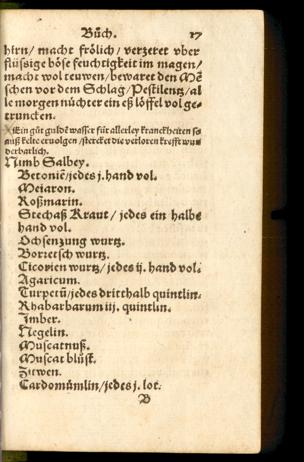 Bůch. 17
hirn/ macht frölich/ verzeret vber
flüssige böse feuchtigkeit im magen/
macht wol teuwen/ bewaret den Mē
schen vor dem Schlag/ Pestilentz/ al
le morgen nüchter ein eß löffel vol ge-
truncken.
Ein gůt guldē wasser für allerley kranckheiten so
auß kelte eruolgen/ stercket die verloren krefft wun
derbarlich.
Nimb Salbey.
Betoniē/ jedes j. hand vol.
Meiaron.
Roßmarin.
Stechaß Kraut/ jedes ein halbe
hand vol.
Ochsenzung wurtz.
Borretsch wurtz.
Cicorien wurtz/ jedes ij. hand vol.
Agaricum.
Turpetū/ jedes dritthalb quintlin.
Rhabarbarum iij. quintlin.
Imber.
Negelin.
Muscatnuß.
Muscat blüst.
Zitwen.
Cardomümlin/ jedes j. lot.
B